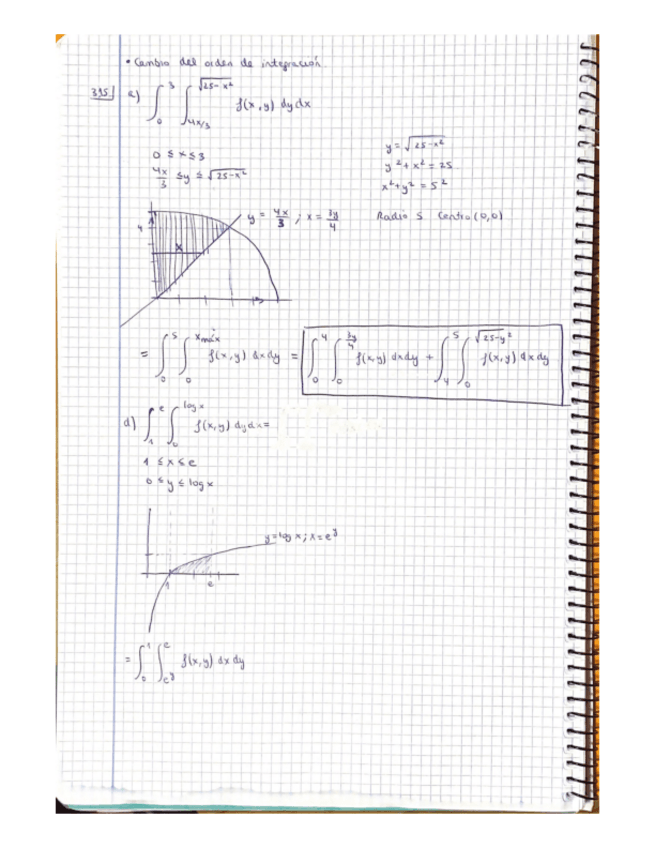 • Cambio del orden de integración.
395. a) ∫₀³ ∫_{4x/3}^{√25-x²} f(x,y) dy dx
0 ≤ x ≤ 3
4x/3 ≤ y ≤ √25-x²
y = √25-x²
y² + x² = 25
x² + y² = 5²
Radio 5 Centro (0,0)
y = 4x/3 ; x = 3y/4
4
x
= ∫₀⁵ ∫₀^{xmáx} f(x,y) dx dy = ∫₀⁴ ∫₀^{3y/4} f(x,y) dx dy + ∫₄⁵ ∫₀^{√25-y²} f(x,y) dx dy
d) ∫₁^e ∫₀^{log x} f(x,y) dy dx =
1 ≤ x ≤ e
0 ≤ y ≤ log x
y = log x ; x = e^y
1 e
= ∫₀¹ ∫_{e^y}^e f(x,y) dx dy